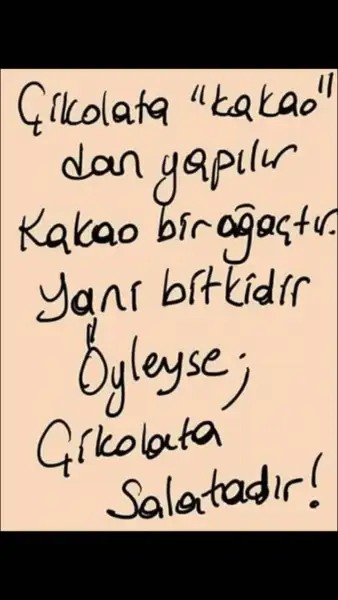 Çikolata "kakao"
dan yapılır
Kakao bir ağaçtır.
Yani bitkidir
Öyleyse;
Çikolata
Salatadır!